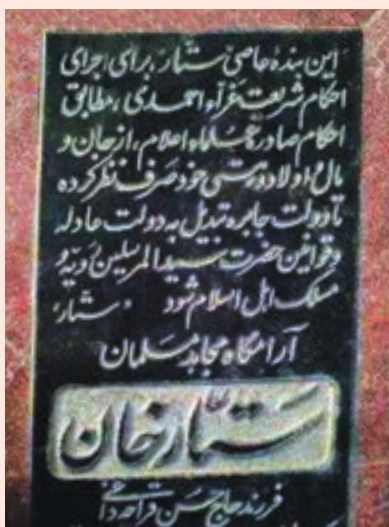 این بنده عاصی "ستار" برای اجرای
احکام شریعت غراء احمدی، مطابق
احکام صادرهٔ علماء اعلام، از جان و
مال و اولاد و هستی خود صرف نظر کرده
تا دولت جابره تبدیل به دولت عادله
و قوانین حضرت سید المرسلین رویه و
مسلک اهل اسلام شود "ستار"
آرامگاه مجاهد مسلمان
ستارخان
فرزند حاج حسن قراجه داغی